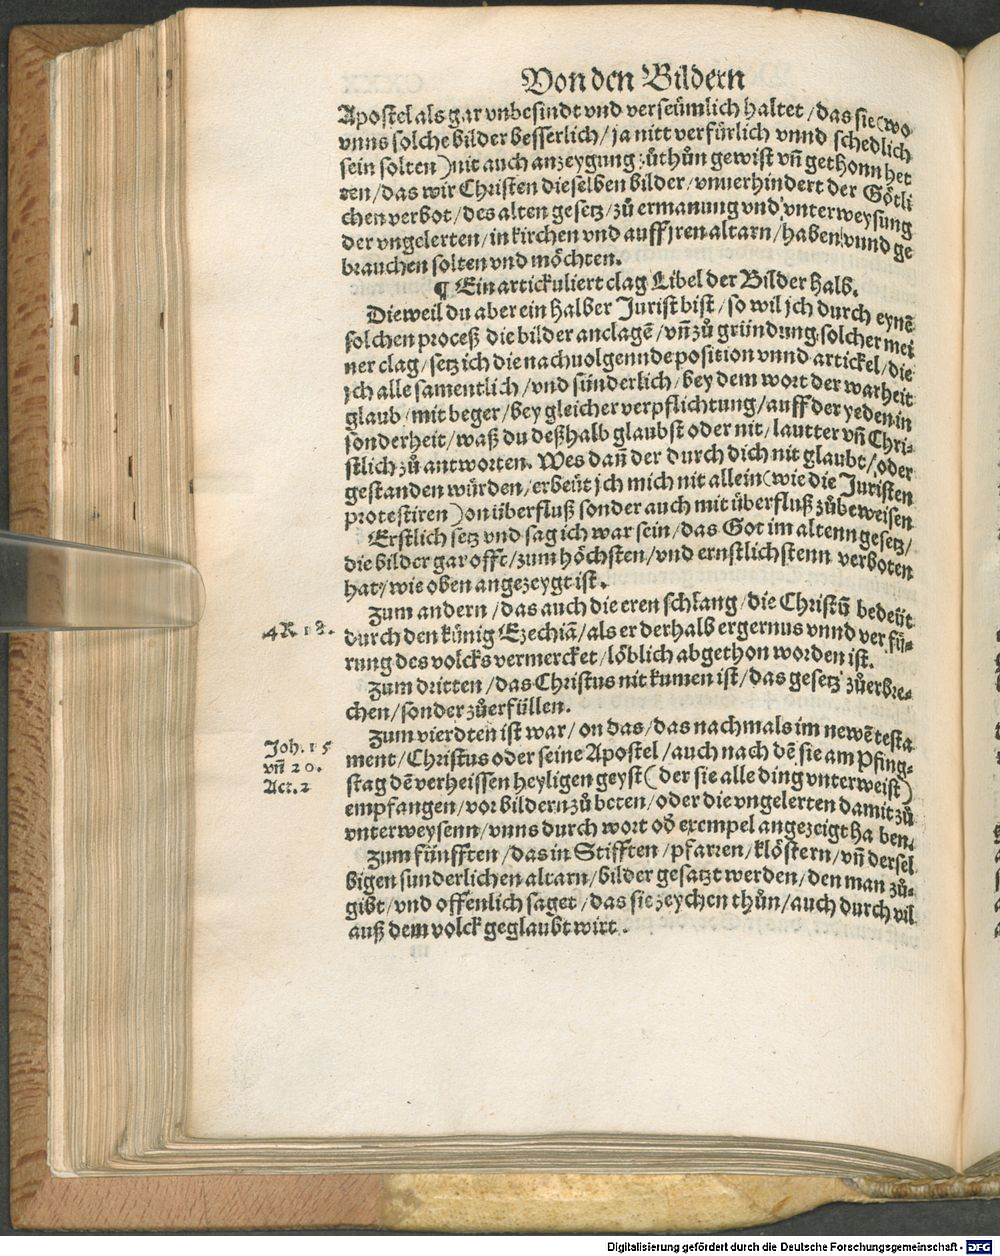 Von den Bildern
Apostel als gar vnbesindt vnd verseümlich haltet / das sie (wo
vnns solche bilder besserlich / ja nitt verfürlich vnnd schedlich
sein solten) nit auch anzeygung zůthůn gewist vñ gethonn het
ten / das wir Christen dieselben bilder / vnuerhindert der Götli
chen verbot / des alten gesetz / zů ermanung vnd vnterweysung
der vngelerten / in kirchen vnd auff jren altarn / haben vnnd ge
brauchen solten vnd möchten.
¶ Ein artickuliert clag Libel der Bilder halb.
Dieweil du aber ein halber Jurist bist / so wil jch durch eynē
solchen proceß die bilder anclagē / vñ zů gründung solcher mei
ner clag / setz ich die nachuolgennde position vnnd artickel / die
jch alle samentlich / vnd sünderlich / bey dem wort der warheit
glaub / mit beger / bey gleicher verpflichtung / auff der yeden in
sonderheit / waß du deßhalb glaubst oder nit / lautter vñ Chri-
stlich zů antworten. Wes dañ der durch dich nit glaubt / oder
gestanden würden / erbeüt jch mich nit allein (wie die Juristen
protestiren) on überfluß sonder auch mit überfluß zůbeweisen
Erstlich setz vnd sag ich war sein / das Got im altenn gesetz /
die bilder gar offt / zum höchsten / vnd ernstlichstenn verboten
hat / wie oben angezeygt ist.
Zum andern / das auch die eren schlang / die Christū bedeüt
4 R 18.
durch den künig Ezechiā / als er derhalb ergernus vnnd verfü-
rung des volcks vermercket / löblich abgethon worden ist.
Zum dritten / das Christus nit kumen ist / das gesetz zůerbre-
chen / sonder zůerfüllen.
Zum vierdten ist war / on das / das nachmals im newē testa
Joh. 15
vñ 20.
Act. 2
ment / Christus oder seine Apostel / auch nach dē sie am Pfing-
stag dē verheissen heyligen geyst (der sie alle ding vnterweist)
empfangen / vor bildern zů beten / oder die vngelerten damit zů
vnterweysenn / vnns durch wort od̄ exempel angezeigt ha ben.
Zum fünfften / das in Stifften / pfarren / klöstern / vñ dersel
bigen sunderlichen altarn / bilder gesatzt werden / den man zů-
gibt / vnd offenlich saget / das sie zeychen thůn / auch durch vil
auß dem volck geglaubt wirt.
Digitalisierung gefördert durch die Deutsche Forschungsgemeinschaft - DFG